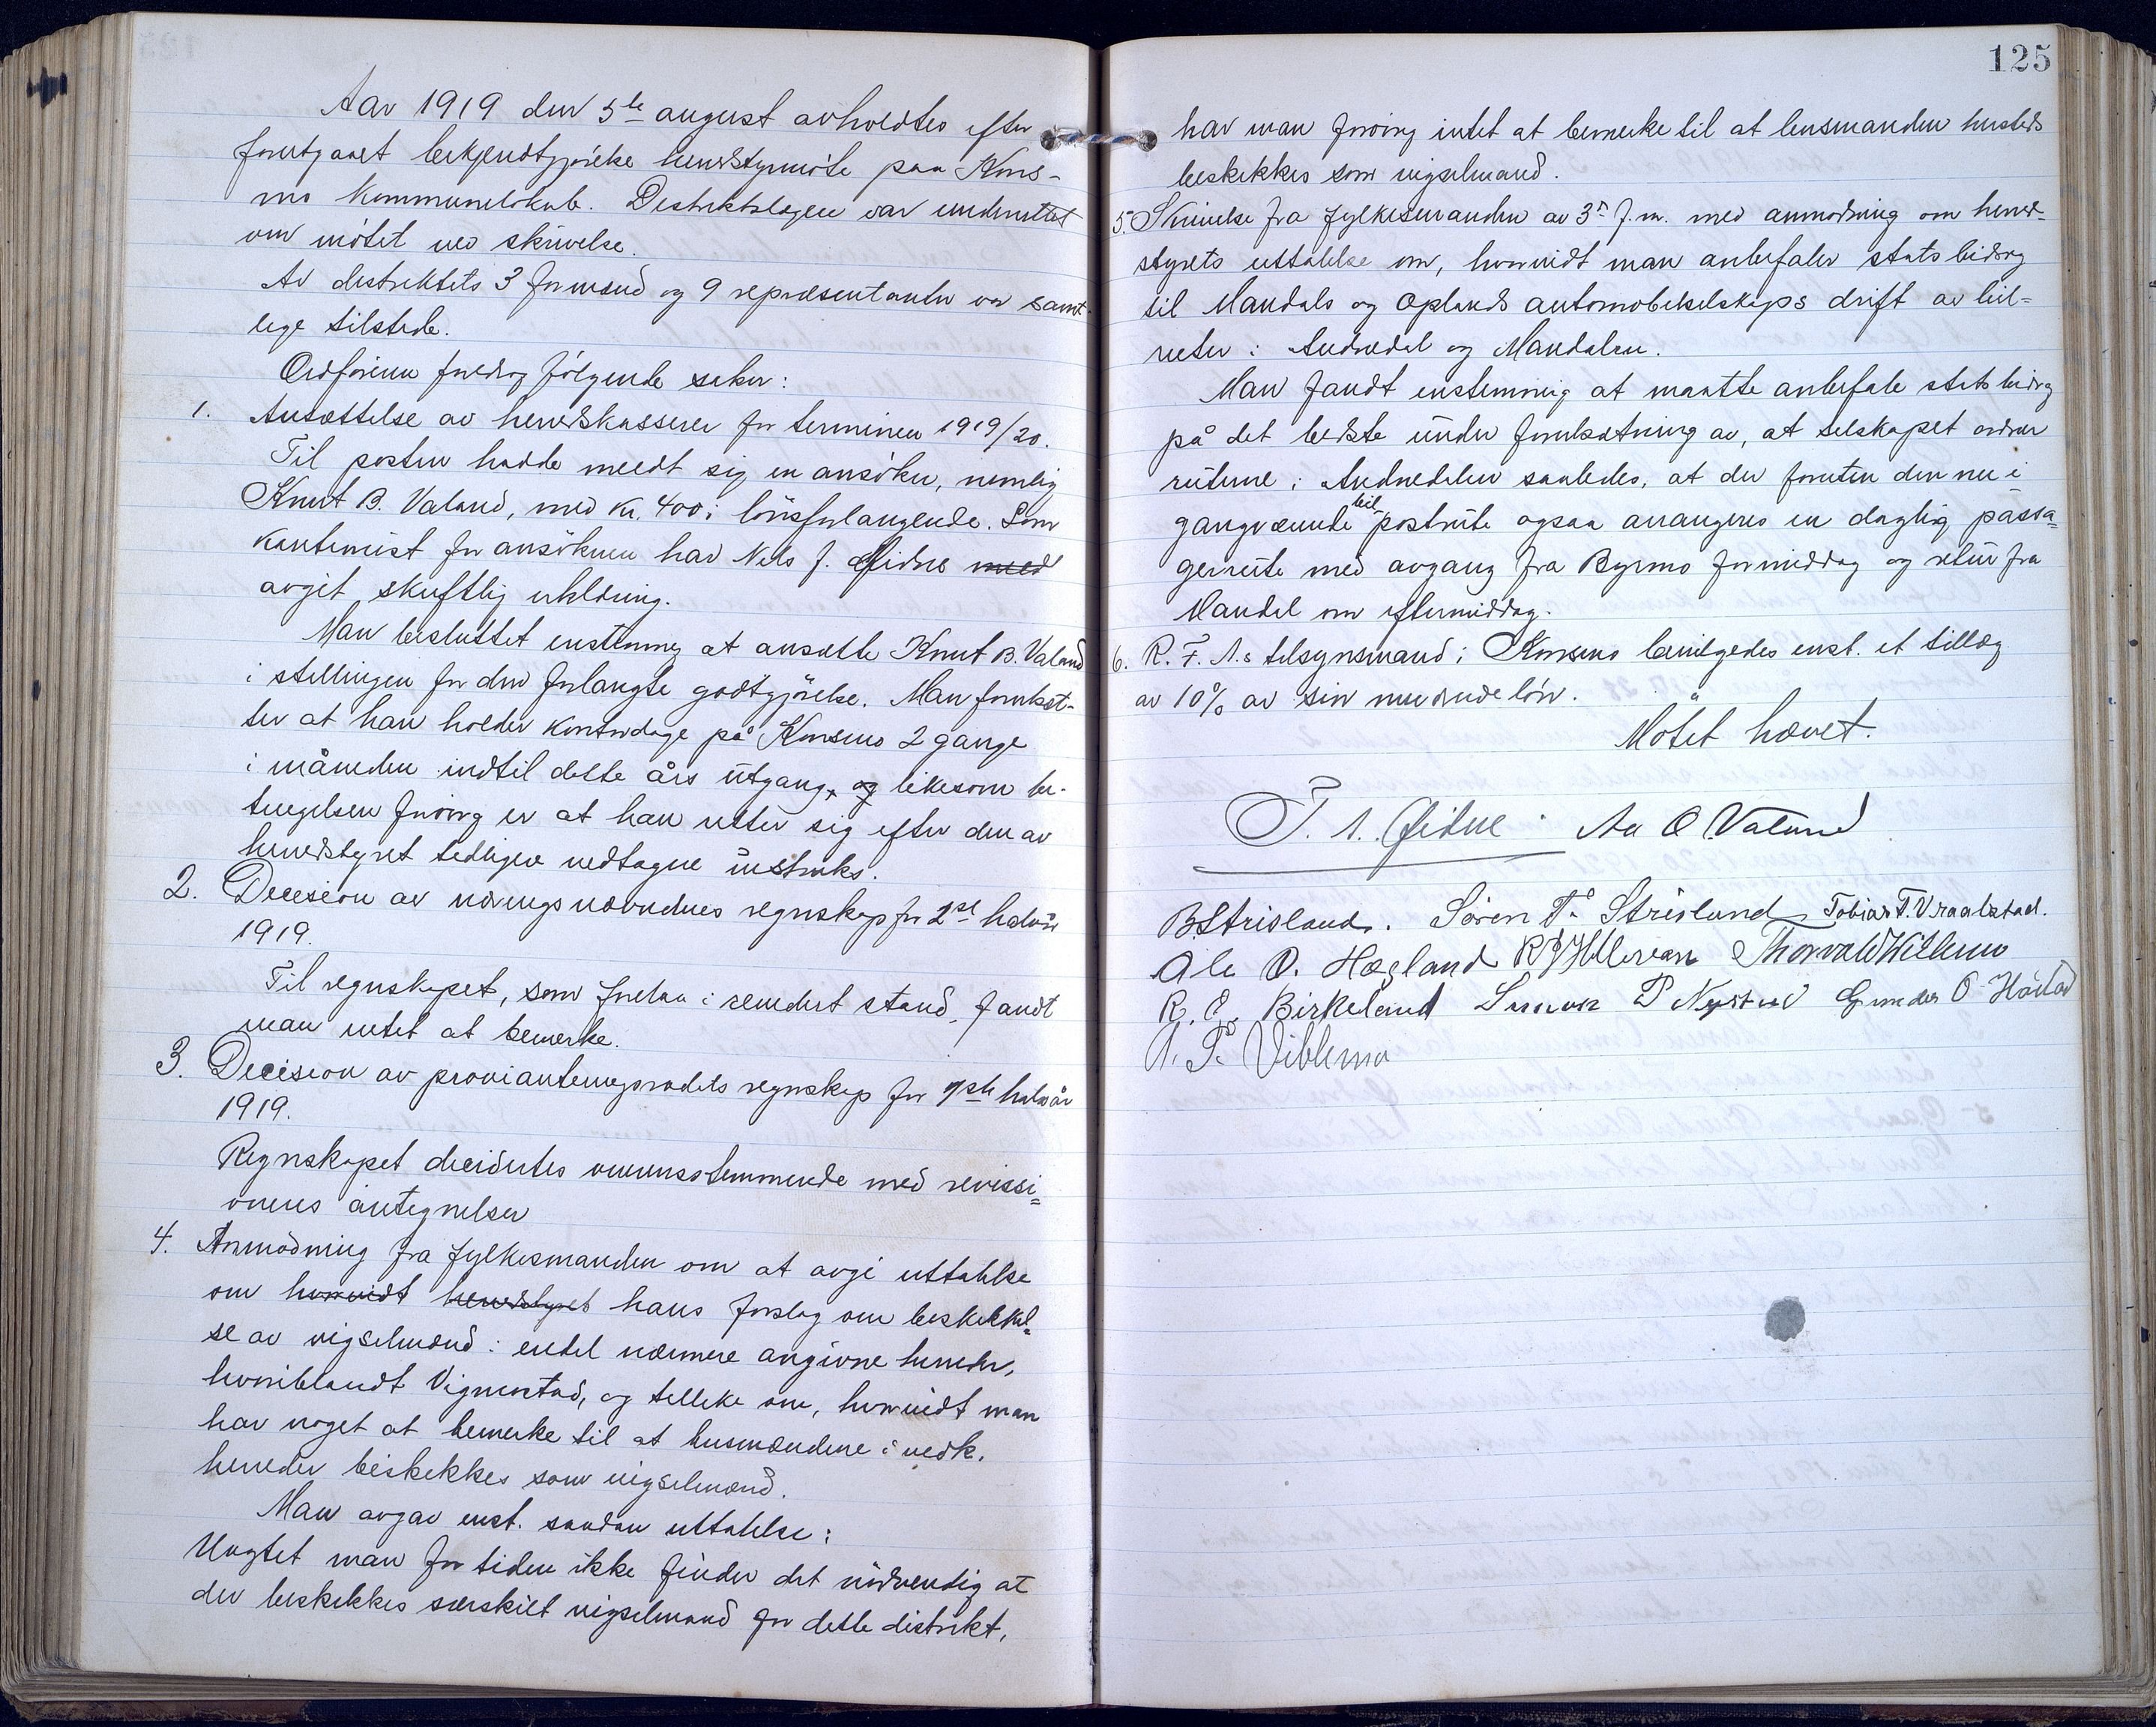 Aar 1919 den 5te august avholdtes efter
forutgaaet bekjendtgjørelse herredstyrmøte paa Kons-
mo kommunelokale. Distriktslægen var underrettet
om møtet ved skrivelse.
Av distriktets 3 formænd og 9 repræsentanter var samt-
lige tilstede.
Ordføreren foredrog følgende saker:
1. Ansættelse av herredskasserer for terminen 1919/20.
Til posten hadde meldt sig en ansøker, nemlig
Knut B. Valand, med kr. 400 i lønsforlangende. Som
kautionist for ansøkeren har Nils J. Øidne med
avgit skriftlig erklæring.
Man besluttet enstemmig at ansætte Knut B. Valand
i stillingen for den forlangte godtgjørelse. Man forutsæt-
ter at han holder kontordage på Konsmo 2 gange
i måneden indtil dette års utgang, og likesom be-
tingelsen forøvrig er at han retter sig efter den av
herredstyret tidligere vedtagne instruks.
2. Decision av næringsnævndnes regnskap for 2det halvår
1919.
Til regnskapet, som forelaa i revidert stand, fandt
man intet at bemerke.
3. Decision av provianteringsrådets regnskap for 1ste halvår
1919.
Regnskapet decidertes overensstemmende med revissi-
onens antegnelser
4. Anmodning fra fylkesmanden om at avgi uttalelse
om hvorvidt herredstyret hans forslag om beskikkel-
se av vigselmænd i endel nærmere angivne herreder,
hvoriblandt Vigmostad, og tillike om, hvorvidt man
har noget at bemerke til at lensmændene i vedk.
herreder beskikkes som vigselmænd.
Man avgav enst. saadan uttalelse:
Uagtet man for tiden ikke finder det nødvendig at
der beskikkes særskilt vigselmand for dette distrikt,
125
har man forøvrig intet at bemerke til at lensmanden hersteds
beskikkes som vigselmand.
5. Skrivelse fra fylkesmanden av 3. f. m. med anmodning om herred-
styrets uttalelse om, hvorvidt man anbefaler statsbidrag
til Mandals og Oplands automobilselskaps drift av bil-
ruter i Audnedal og Mandalen.
Man fandt enstemmig at maatte anbefale statsbidrag
på det bedste under forutsætning av, at selskapet ordner
rutene i Audnedalen saaledes, at der foruten den nu i
gangværende bil-postrute ogsaa arrangeres en daglig passa-
gerrute med avgang fra Byremo formiddag og retur fra
Mandal om eftermiddag.
6. R. F. A.s tilsynsmand i Konsmo bevilgedes enst. et tillæg
av 10% av sin nuværende løn.
Møtet hævet.
T. A. Øidne Aa O. Valand
B. Strisland. Søren T. Strisland Tobias T. Vraalstad.
Ole O. Hægland Thorvald Villemo
R. O. Birkeland Gunder O Håstad
A. T. Viblemo